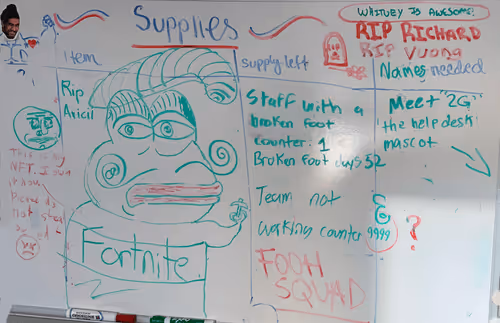 Supplies
WHITNEY IS AWESOME!
RIP RICHARD
RIP
Item
supply left
Names needed
Rip
Avicii
Staff with a
broken foot
counter: 1
Broken foot days 52
Meet "2G"
the help desk
mascot
This is my
NFT. I own
it now.
Please do
not steal
Team not
working counter 9999
?
Fortnite
FOOH
SQUAD